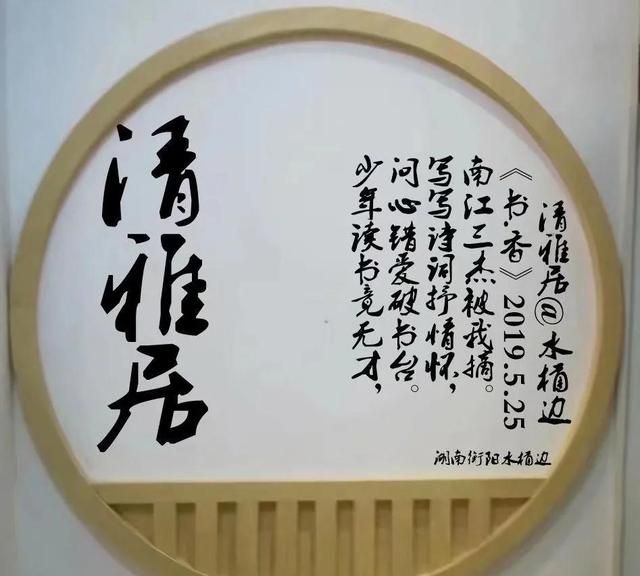 清雅居
少年读书竟无才，
问心错爱破书台。
写写诗词抒情怀，
南江三杰被我摘。
《书.香》2019.5.25
清雅居@水桶边
湖南衡阳水桶边